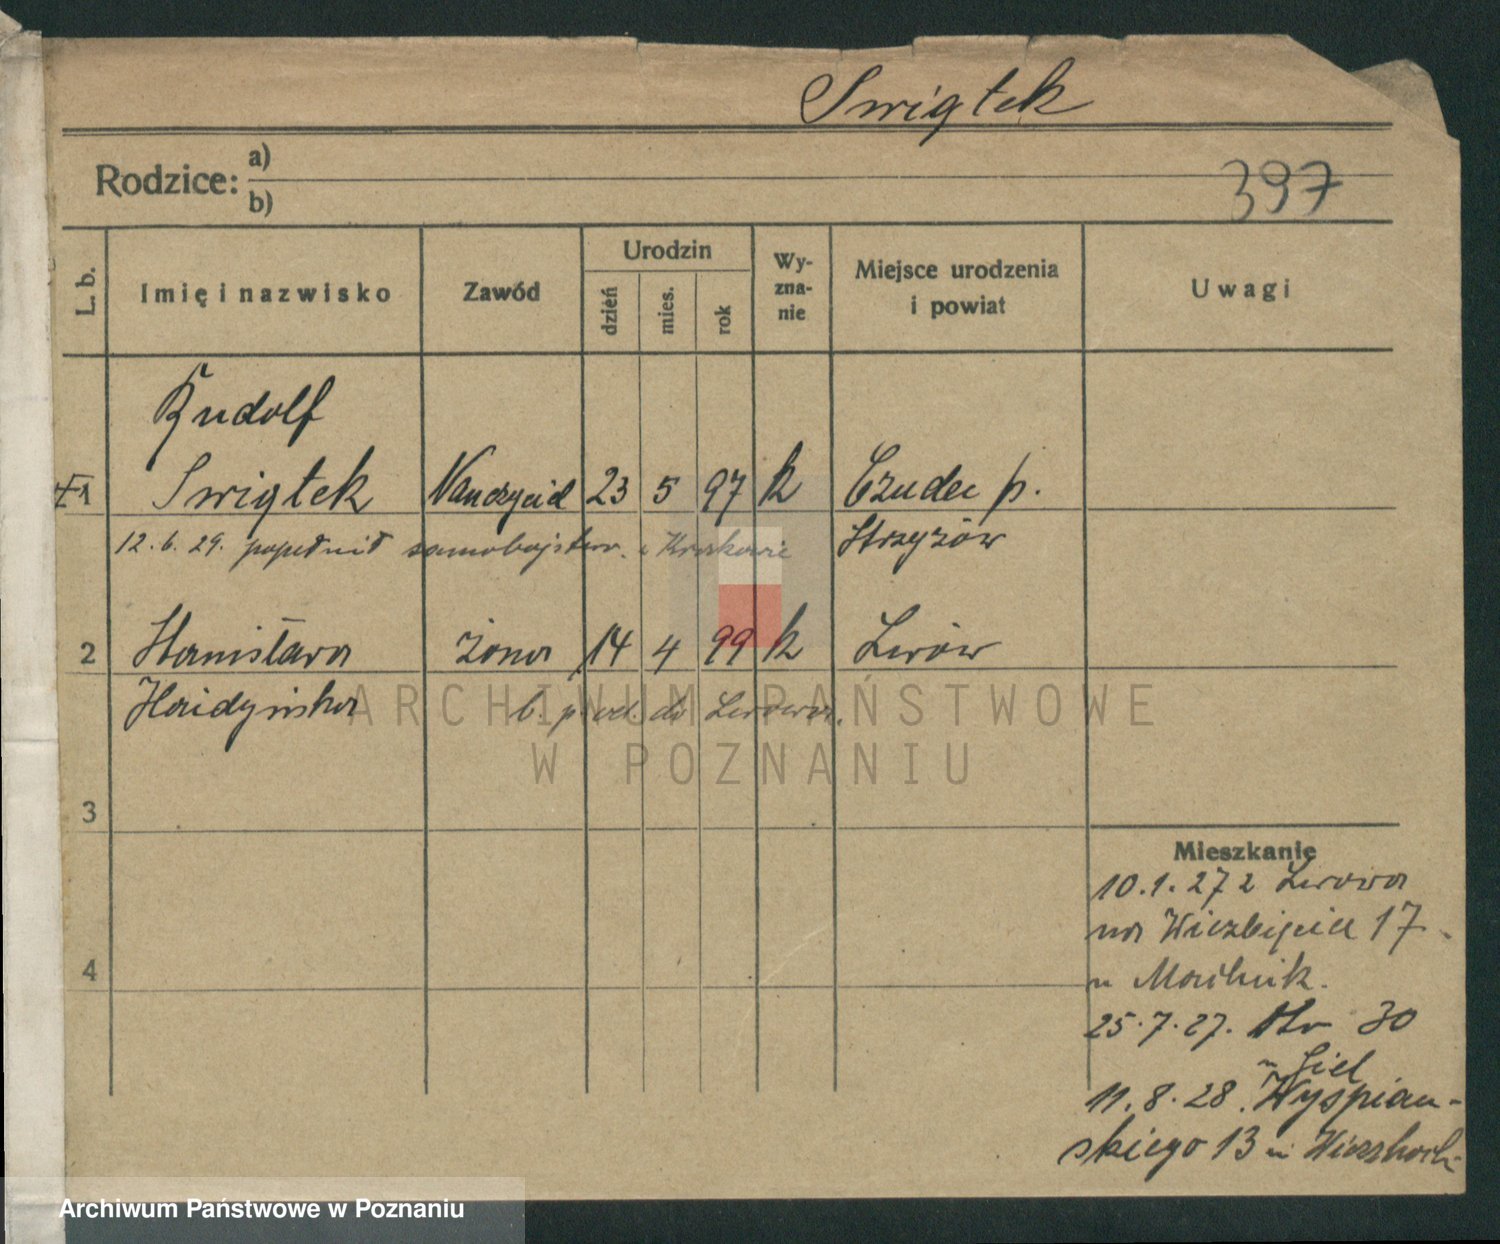 Swiątek
Rodzice: a)
b)
397
L. b. Imię i nazwisko Zawód Urodzin dzień mies. rok Wy-zna-nie Miejsce urodzenia i powiat Uwagi
Rudolf
1 Swiątek Nauczyciel 23 5 97 k Czudec p.
12.6.29. popełnił samobójstwo w Krakowie Strzyżów
2 Stanisława żona 14 4 99 k Lwów
Haidyńska do Lwowa.
3
Mieszkanie
10.1.27 z Lwowa
na Wierzbięcice 17
4
u
25.7.27. 30
u
11.8.28. Wyspiań-
skiego 13 u
ARCHIWUM PAŃSTWOWE
W POZNANIU
Archiwum Państwowe w Poznaniu